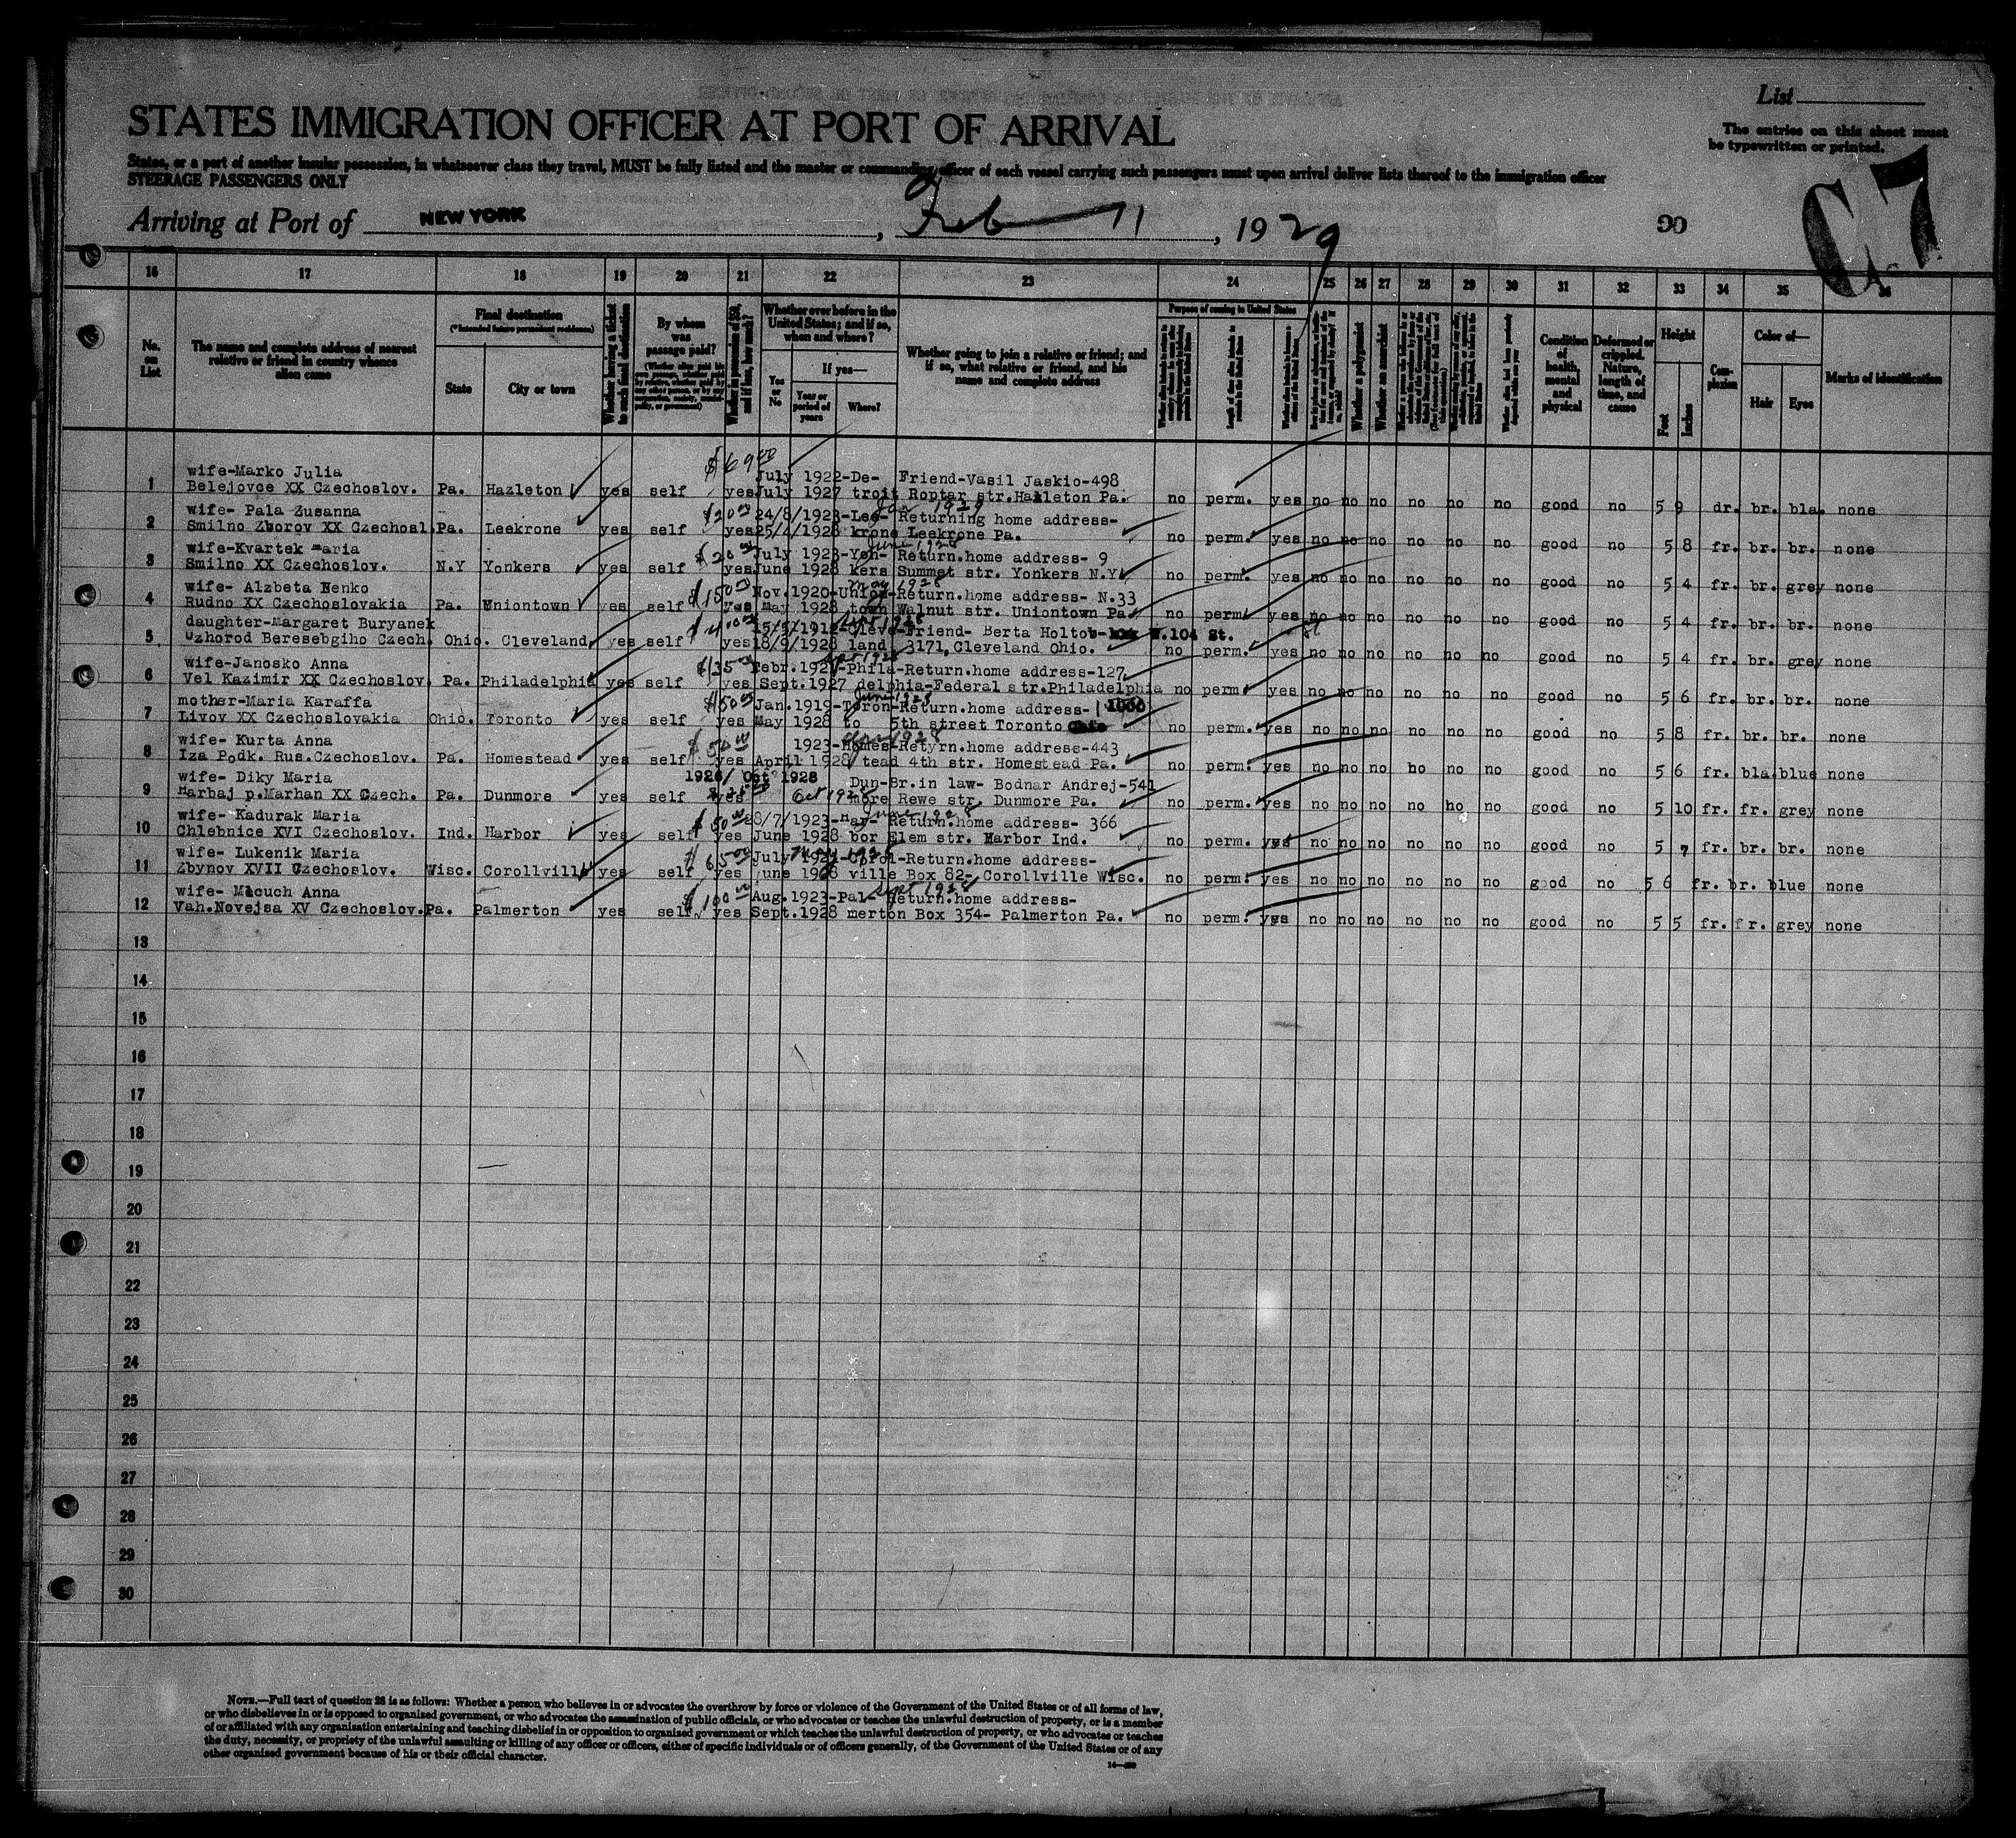 List
STATES IMMIGRATION OFFICER AT PORT OF ARRIVAL
The entries on this sheet must
be typewritten or printed.
States, or a part of another insular possession, in whatsoever class they travel, MUST be fully listed and the master or commanding officer of each vessel carrying such passengers must upon arrival deliver lists thereof to the immigration officer
STEERAGE PASSENGERS ONLY
C7
Arriving at Port of NEW YORK, Feb 11, 1929
16 17 18 19 20 21 22 23 24 25 26 27 28 29 30 31 32 33 34 35 36
No. on List
The name and complete address of nearest
relative or friend in country whence
alien came
Final destination
(*Intended future permanent residence)
State
City or town
Whether having a ticket
to such final destination
By whom
was
passage paid?
Whether in possession of $50,
and if less, how much?
Whether ever before in the
United States; and if so,
when and where?
Yes or No
If yes—
Year or
period of
years
Where?
Whether going to join a relative or friend; and
if so, what relative or friend, and his
name and complete address
Purpose of coming to United States
Whether a polygamist
Whether an anarchist
Condition
of
health,
mental
and
physical
Deformed or
crippled.
Nature,
length of
time, and
cause
Height
Feet
Inches
Com-
plexion
Color of—
Hair
Eyes
Marks of identification
$69.00
wife-Marko Julia July 1922-De- Friend-Vasil Jaskio-498
1 Belejovce XX Czechoslov. Pa. Hazleton yes self yes July 1927 troit Roptar str.Hazleton Pa. no perm. yes no no no no no no good no 5 9 dr. br. bla. none
wife- Pala Zusanna $20.00 24/8/1923-Lee- Returning home address-
2 Smilno Zborov XX Czechosl. Pa. Leekrone yes self yes 25/4/1928 krone Leekrone Pa. no perm. yes no no no no no no good no 5 8 fr. br. br. none
wife-Kvartek Maria $20.00 July 1923-Yon- Return.home address- 9
3 Smilno XX Czechoslov. N.Y Yonkers yes self yes June 1928 kers Summet str. Yonkers N.Y. no perm. yes no no no no no no good no 5 4 fr. br. grey none
wife- Alzbeta Henko $150.00 Nov.1920-Union-Return.home address- N.33
4 Rudno XX Czechoslovakia Pa. Uniontown yes self yes May 1928 town Walnut str. Uniontown Pa. no perm. yes no no no no no no good no 5 4 fr. br. br. none
daughter-Margaret Buryanek 15/5/1912-Cleve-Friend- Berta Holtob- W.104 St.
5 Uzhorod Beresebgiho Czech. Ohio. Cleveland yes self yes 18/9/1928 land 3171, Cleveland Ohio. no perm. yes no no no no no no good no 5 4 fr. br. grey none
wife-Janosko Anna Febr.1921-Phila-Return.home address-127,
6 Vel Kazimir XX Czechoslov. Pa. Philadelphia yes self yes Sept.1927 delphia-Federal str.Philadelphia no perm. yes no no no no no no good no 5 6 fr. br. br. none
mother-Maria Karaffa $50.00 Jan.1919-Toron-Return.home address- 1000
7 Livov XX Czechoslovakia Ohio. Toronto yes self yes May 1928 to 5th street Toronto Ohio no perm. yes no no no no no no good no 5 8 fr. br. br. none
wife- Kurta Anna $50.00 1923-Homes-Retyrn.home address-443
8 Iza Podk. Rus.Czechoslov. Pa. Homestead yes self yes April 1928 tead 4th str. Homestead Pa. no perm. yes no no no ho no no good no 5 6 fr. bla. blue none
wife- Diky Maria 1926/ Oct 1928 Dun-Br.in law- Bodnar Andrej-541
9 Harbaj p.Marhan XX Czech. Pa. Dunmore yes self yes Oct 1928 more Rewe str. Dunmore Pa. no perm. yes no no no no ho no good no 5 10 fr. fr. grey none
wife- Kadurak Maria $50.00 28/7/1923-Har- Return.home address- 366
10 Chlebnice XVI Czechoslov. Ind. Harbor yes self yes June 1928 bor Elem str. Harbor Ind. no perm. yes no no no no no no good no 5 7 fr. br. br. none
wife- Lukenik Maria $65.00 July 1921-Corol-Return.home address-
11 Zbynov XVII Czechoslov. Wisc. Corollville yes self yes June 1928 ville Box 82- Corollville Wisc. no perm. yes no no no no no no good no 5 6 fr. br. blue none
wife- Macuch Anna $100.00 Aug.1923-Pal- Return.home address-
12 Vah.Novejsa XV Czechoslov. Pa. Palmerton yes self yes Sept.1928 merton Box 354- Palmerton Pa. no perm. yes no no no no no no good no 5 5 fr. fr. grey none
13
14
15
16
17
18
19
20
21
22
23
24
25
26
27
28
29
30
NOTE.—Full text of question 28 is as follows: Whether a person who believes in or advocates the overthrow by force or violence of the Government of the United States or of all forms of law,
or who disbelieves in or is opposed to organized government, or who advocates the assassination of public officials, or who advocates or teaches the unlawful destruction of property, or is a member
of or affiliated with any organization entertaining and teaching disbelief in or opposition to organized government or which teaches the unlawful destruction of property, or who advocates or teaches
the duty, necessity, or propriety of the unlawful assaulting or killing of any officer or officers, either of specific individuals or of officers generally, of the Government of the United States or of any
other organized government because of his or their official character.